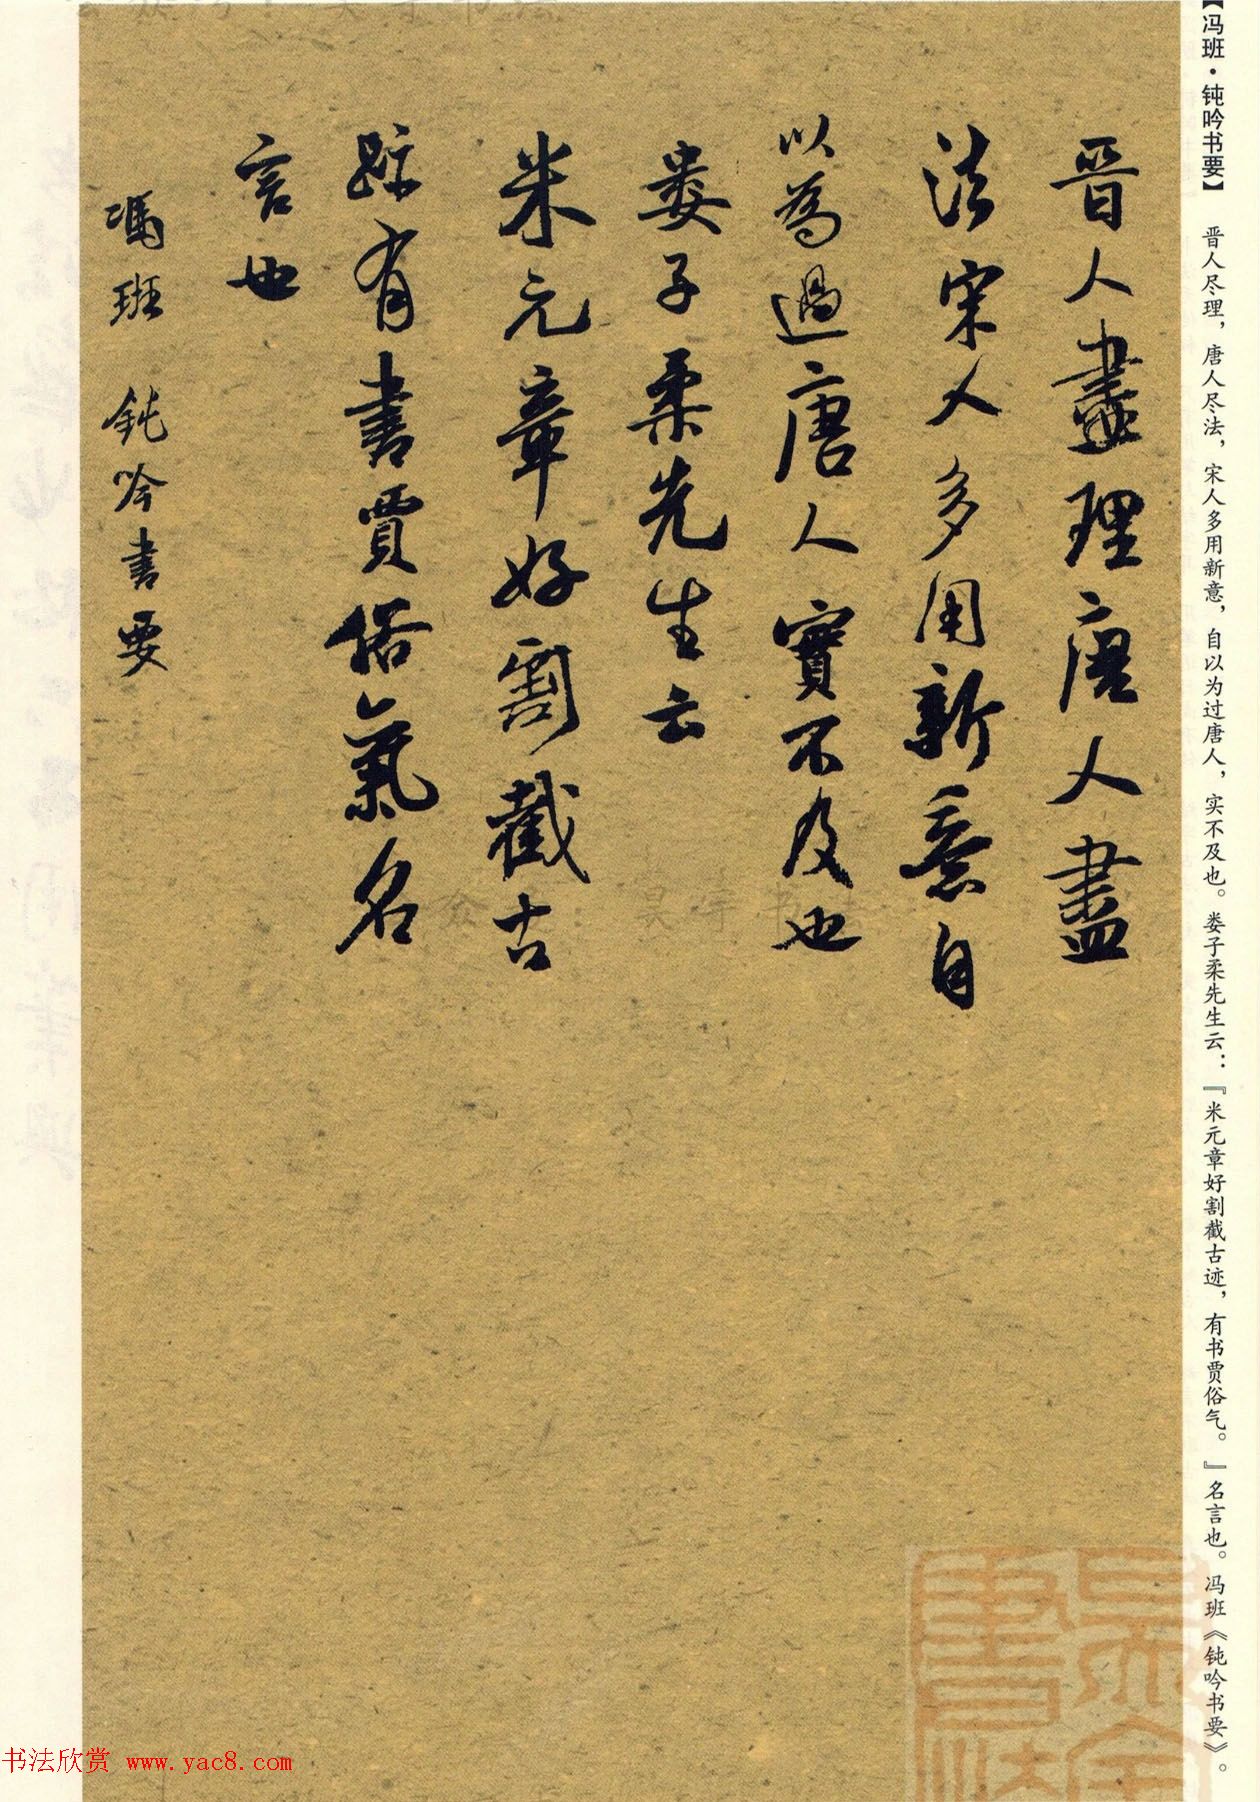 【冯班·钝吟书要】 晋人尽理，唐人尽法，宋人多用新意，自以为过唐人，实不及也。娄子柔先生云：『米元章好割截古迹，有书贾俗气。』名言也。冯班《钝吟书要》。
晋人盡理唐人盡
法宋人多用新意自
以為過唐人實不及也
婁子柔先生云
米元章好割截古
跡有書賈俗氣名
言也
馮班 鈍吟書要
书法欣赏 www.yac8.com